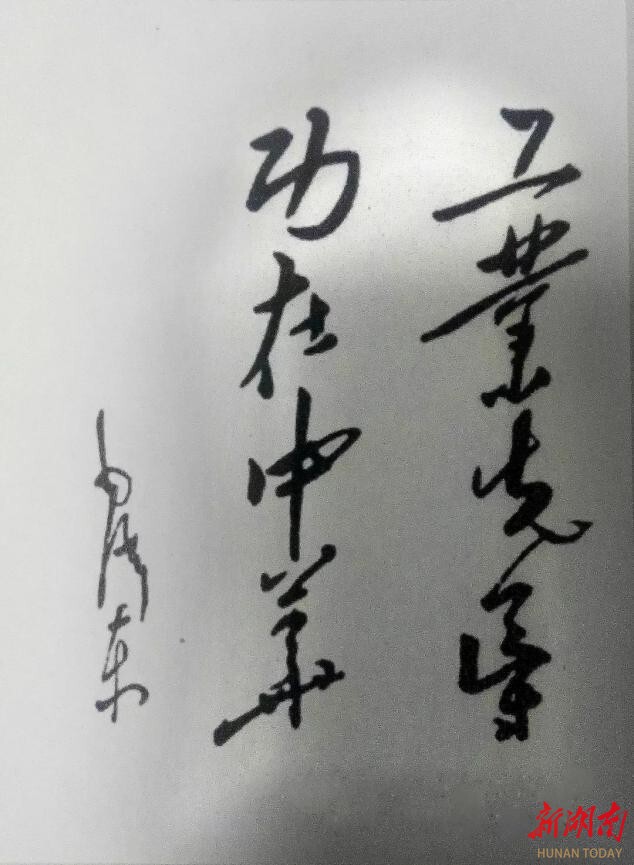 工業先導
功在中華
毛澤东
新湖南
HUNAN TODAY